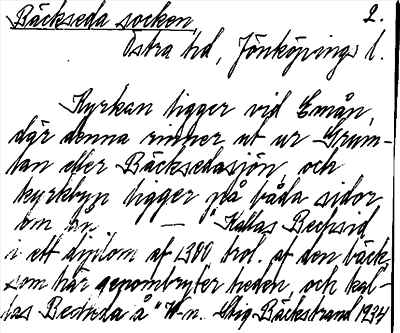 Bäckseda socken, 2.
Östra hd, Jönköpings l.
Kyrkan ligger vid Emån,
där denna rinner ut ur Grum-
lan eller Bäcksedasjön, och
kyrkbyn ligger på båda sidor
om ån. — "Kallas Becksid
i ett diplom af 1380 trol. af den bäck,
som här genombryter heden, och kal-
las Beckeda å" H-n. Stig Bäckstrand 1934